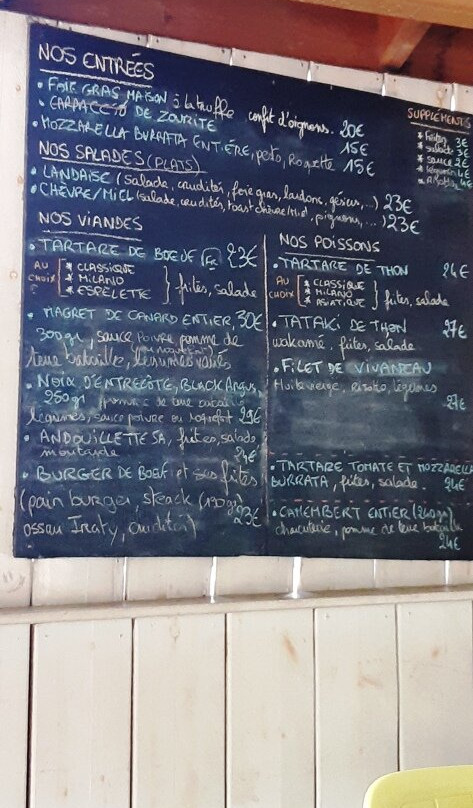 NOS ENTRÉES
• FOIE GRAS MAISON à la truffe confit d'oignons. 20€
• CARPACCIO DE ZOURITE 15€
• MOZZARELLA BURRATA ENTIÈRE, pesto, Roquette 15€
SUPPLEMENTS
* frites 3€
* salade 3€
* sauce 2€
* légumes 4€
* Risotto 4€
NOS SALADES (PLATS)
• LANDAISE (salade, crudités, foie gras, lardons, gésiers, ...) 23€
• CHÈVRE/MIEL (salade, crudités, toast chèvre/miel, pignons, ...) 23€
NOS VIANDES
• TARTARE DE BOEUF 23€
AU CHOIX
* CLASSIQUE
* MILANO
* ESPELETTE
frites, salade
• MAGRET DE CANARD ENTIER, 30€
300gr, sauce poivre pomme de
terre bataille, légumes
• NOIX D'ENTRECÔTE, BLACK Angus,
250gr pomme de terre
légumes, sauce poivre ou roquefort 29€
• ANDOUILLETTE 5A, frites, salade
moutarde 24€
• BURGER DE BOEUF et ses frites
(pain burger, steack (190gr)
ossau Iraty, crudités) 23€
NOS POISSONS
• TARTARE DE THON 24€
AU CHOIX
* CLASSIQUE
* MILANO
* ASIATIQUE
frites, salade
• TATAKI DE THON 27€
wakamé, frites, salade
• FILET DE VIVANEAU
Huile vierge, risotto, légumes
27€
• TARTARE TOMATE ET MOZZARELLA
BURRATA, frites, salade 24€
• CAMEMBERT ENTIER (240gr)
charcuterie, pomme de terre bataille
24€